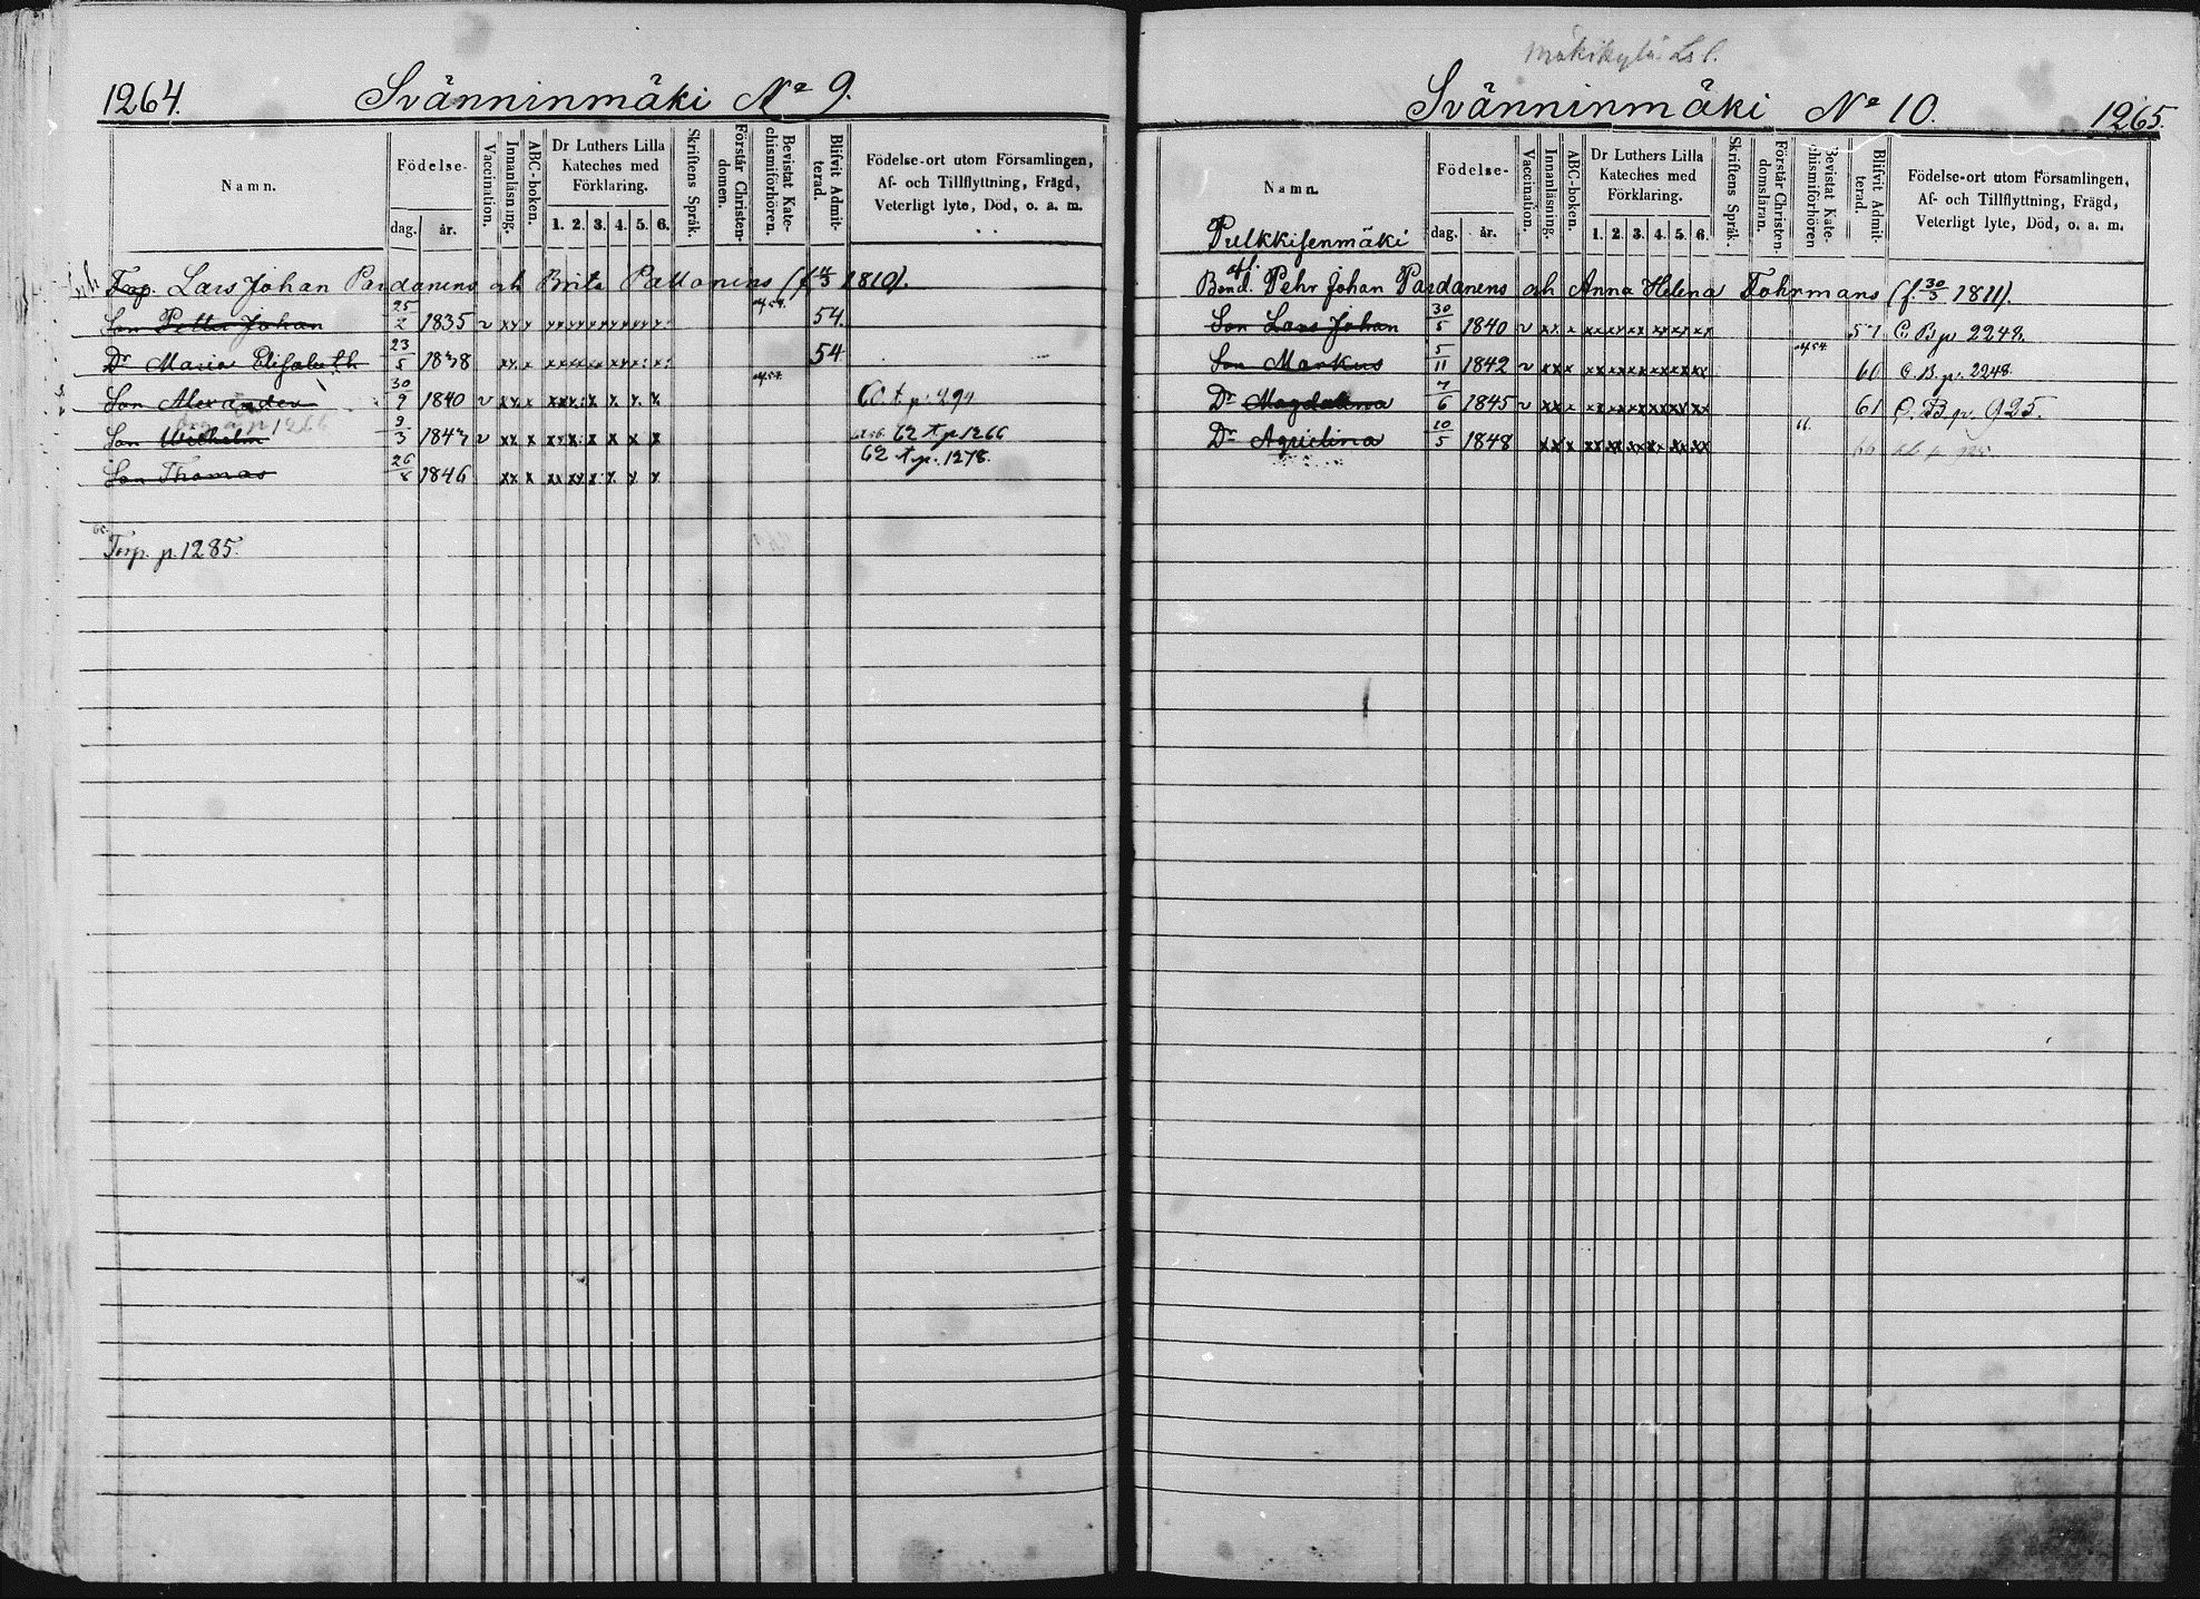 1264. Svänninmäki No 9.
Namn.
Födelse-
dag. år.
Vaccination.
Innanläsning.
ABC-boken.
Dr Luthers Lilla
Kateches med
Förklaring.
1. 2. 3. 4. 5. 6.
Skriftens Språk.
Förstår Christen-
domen.
Bevistat Kate-
chismiförhören.
Blifvit Admit-
terad.
Födelse-ort utom Församlingen,
Af- och Tillflyttning, Frägd,
Veterligt lyte, Död, o. a. m.
Torp. Lars Johan Pardanens och Brita (f. 1810).
Son Petter Johan 25/2 1835 v xx x 54.
Dr Maria Elisabeth 23/5 1838 xx x 54
Son Alexander 30/9 1840 v xx x
Son Wilhelm 9/3 1843 v xx x 62 p. 1266
Son Thomas 26 1846 xx x 62 p. 1278.
Torp. p. 1285.
Mäkikylä
Svänninmäki No 10. 1265.
Namn.
Pulkkisenmäki
Födelse-
dag. år.
Vaccination.
Innanläsning.
ABC-boken.
Dr Luthers Lilla
Kateches med
Förklaring.
1. 2. 3. 4. 5. 6.
Skriftens Språk.
Förstår Christen-
domsläran.
Bevistat Kate-
chismiförhören
Blifvit Admit-
terad.
Födelse-ort utom Församlingen,
Af- och Tillflyttning, Frägd,
Veterligt lyte, Död, o. a. m.
afl.
Bond. Pehr Johan Pardanens och Anna Helena Fohrmans (f. 30/3 1811).
Son Lars Johan 30/5 1840 v xx x 57 C. B. p. 2248.
Son Markus 5/11 1842 v xx x 60 C. B. p. 2248
Dr Magdalena 7/6 1845 v xx x 61 C. B. p. 925.
Dr Agrielina 10/5 1848 xx x 66